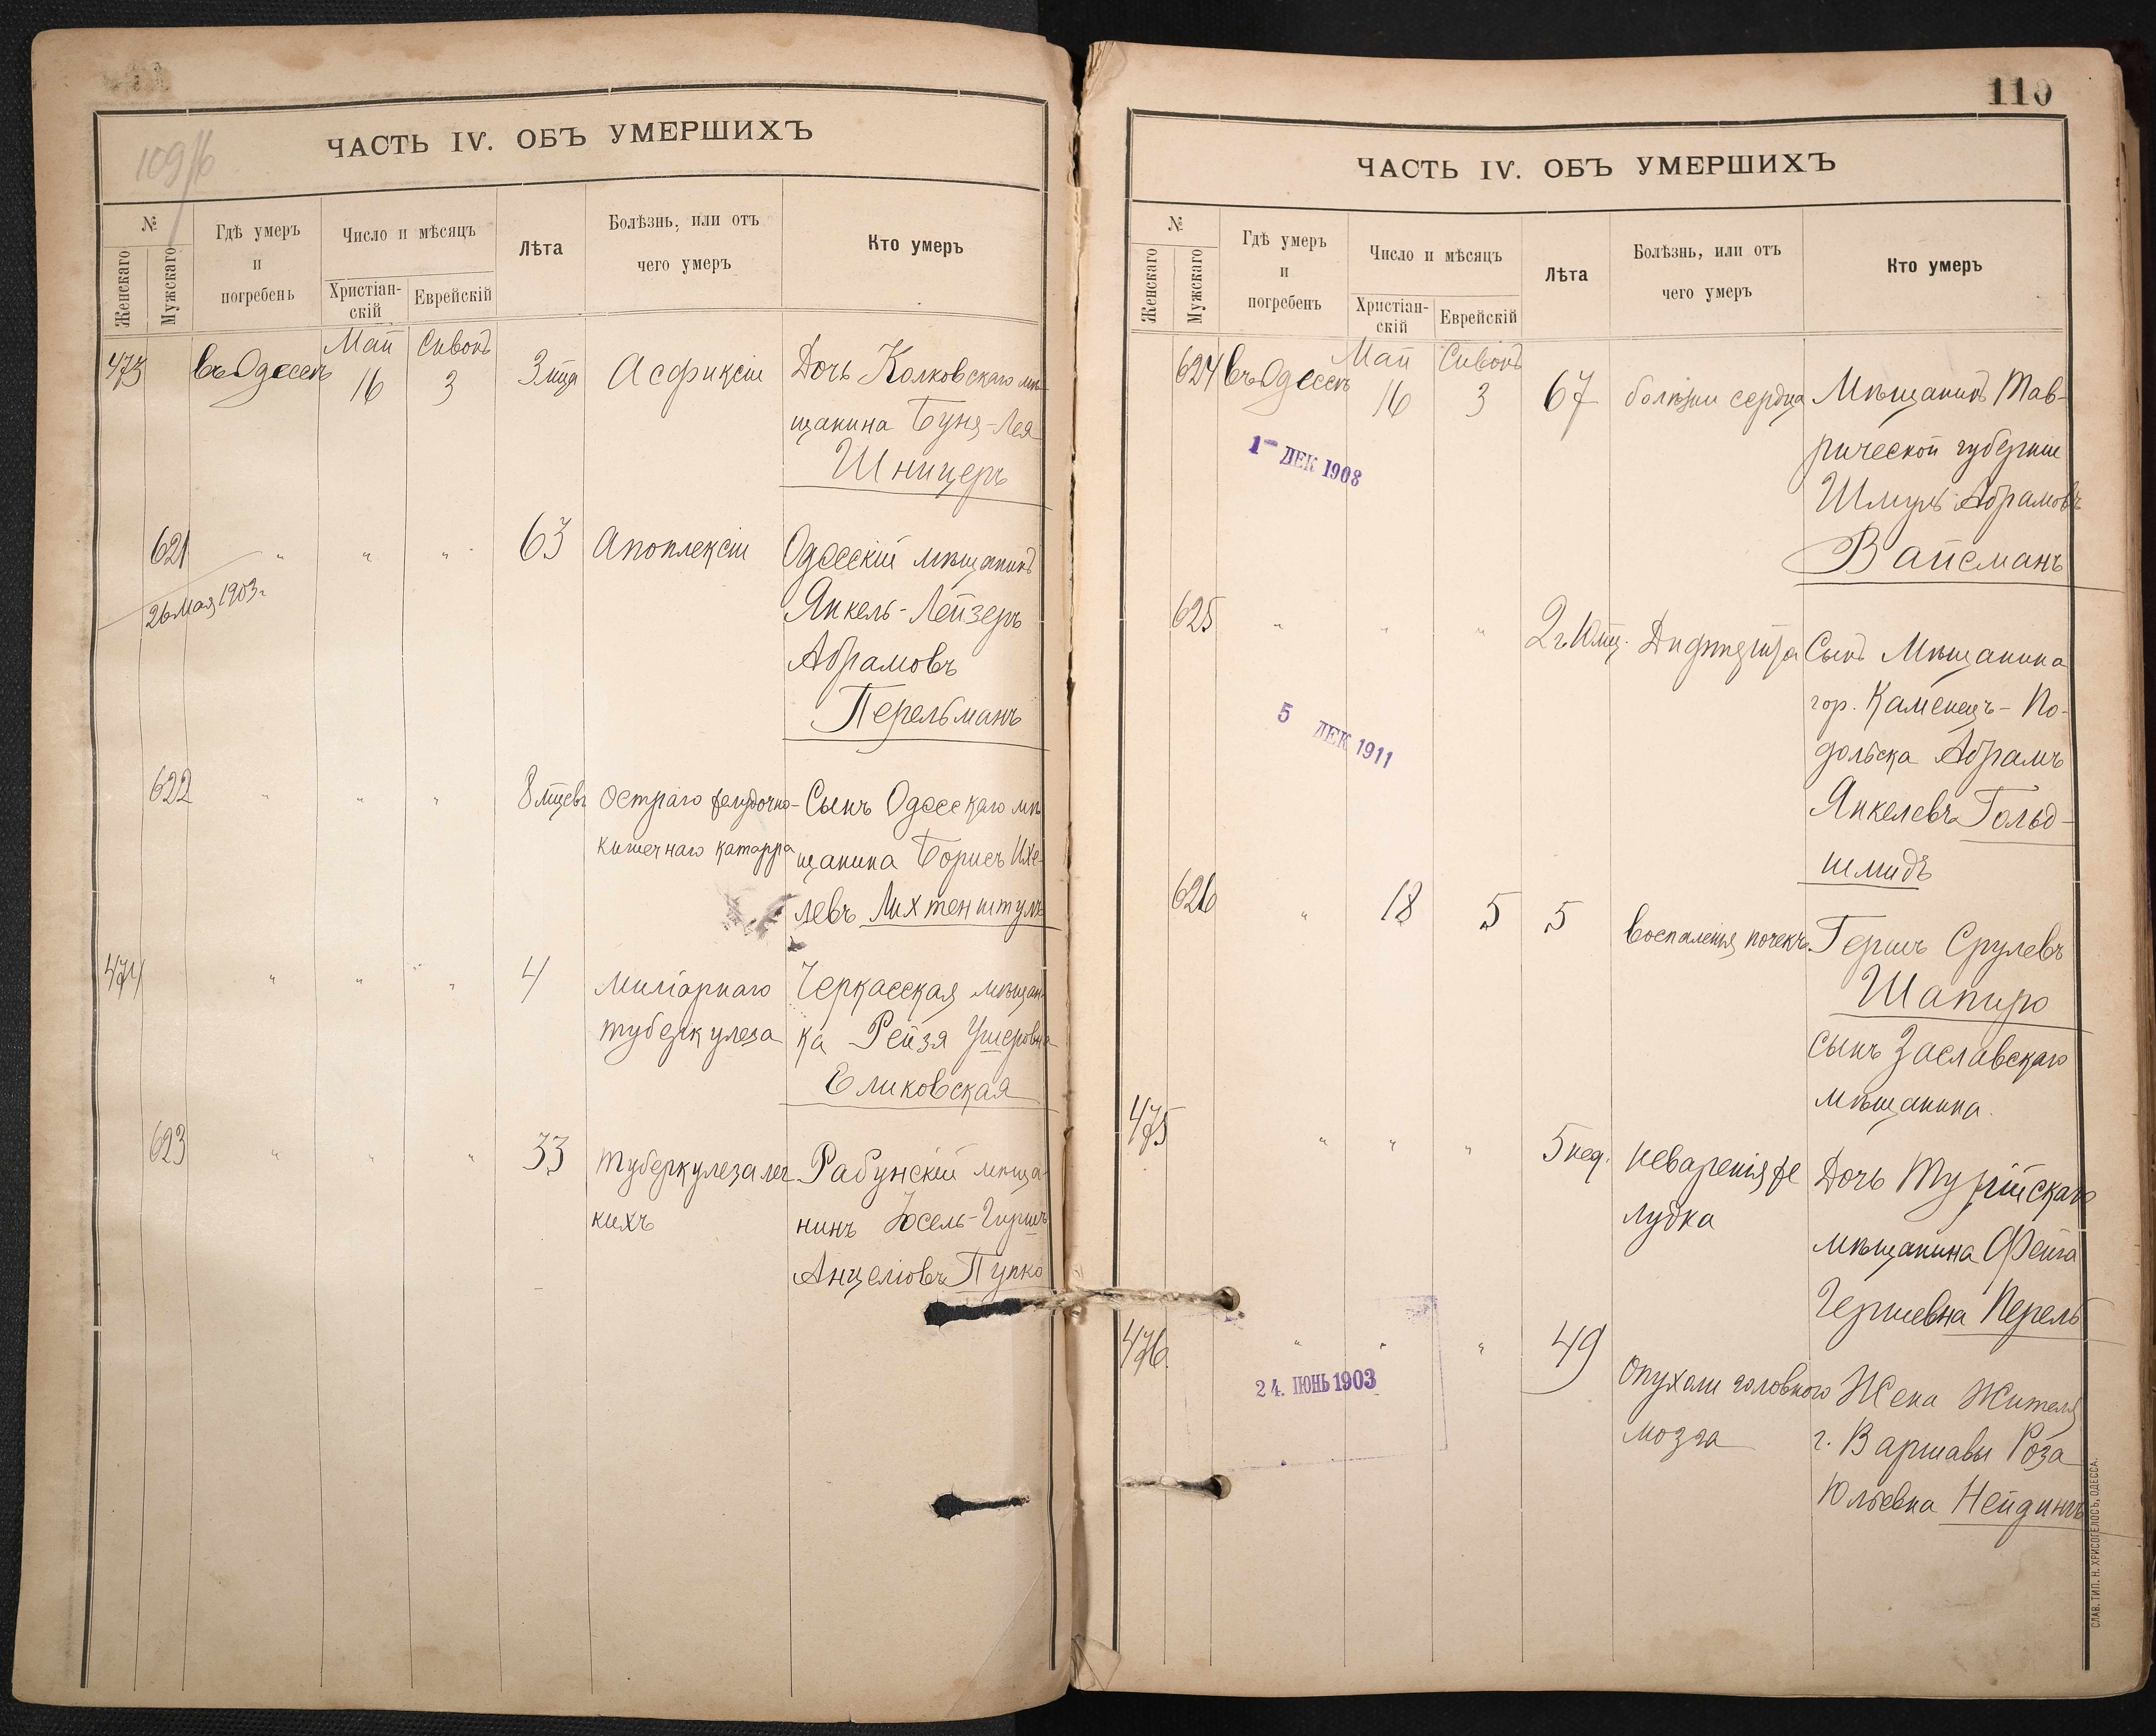 109/б
ЧАСТЬ IV. ОБЪ УМЕРШИХЪ
№
Женскаго
Мужскаго
Гдѣ умеръ
и
погребенъ
Число и мѣсяцъ
Христіан-
скій
Еврейскій
Лѣта
Болѣзнь, или отъ
чего умеръ
Кто умеръ
Май Сивонъ
473 въ Одессѣ 16 3 3 мца Асфиксіи Дочь Колковскаго мѣ-
щанина Буня-Лея
Шницеръ
621 " " " 63 Апоплексіи Одесскій мѣщанинъ
26 Мая 1903 г.
Янкель-Лейзеръ
Абрамовъ
Перельманъ
622 " " " 8 мцевъ Остраго желудочно- Сынъ Одесскаго мѣ
кишечнаго катарра щанина Борисъ Ихе-
левъ Лихтенштулъ
474 " " " 4 Миліарнаго Черкасская мѣщан-
туберкулеза ка Рейзя Ушеровна
Еликовская
623 " " " 33 туберкулеза лег Рабунскій мѣща-
кихъ нинъ Іосель-Гиршъ
Анцеліовъ Пупко
110
ЧАСТЬ IV. ОБЪ УМЕРШИХЪ
№
Женскаго
Мужскаго
Гдѣ умеръ
и
погребенъ
Число и мѣсяцъ
Христіан-
скій
Еврейскій
Лѣта
Болѣзнь, или отъ
чего умеръ
Кто умеръ
Май Сивонъ
624 въ Одессѣ 16 3 67 болѣзни сердца Мѣщанинъ Тав-
рической губерніи
1 ДЕК 1908
Шмуль Абрамовъ
Вайсманъ
625 " " " 2 г. 10 мц. Дифтерита Сынъ Мѣщанина
гор. Каменецъ-По-
5 ДЕК 1911
дольска Абрамъ
Янкелевъ Гольд-
шмидъ
626 " 18 5 5 воспаленія почекъ Гершъ Срулевъ
Шапиро
сынъ Заславскаго
мѣщанина.
475 " " " 5 нед. неваренія же Дочь Турійскаго
лудка мѣщанина Фейга
Гершевна Перель
476 " " " 49 Опухоли головного Жена Жителя
24. ІЮНЬ 1903
мозга г. Варшавы Роза
Юльевна Нейдингъ
СЛАВ. ТИП. Н. ХРИСОГЕЛОСЪ, ОДЕССА.